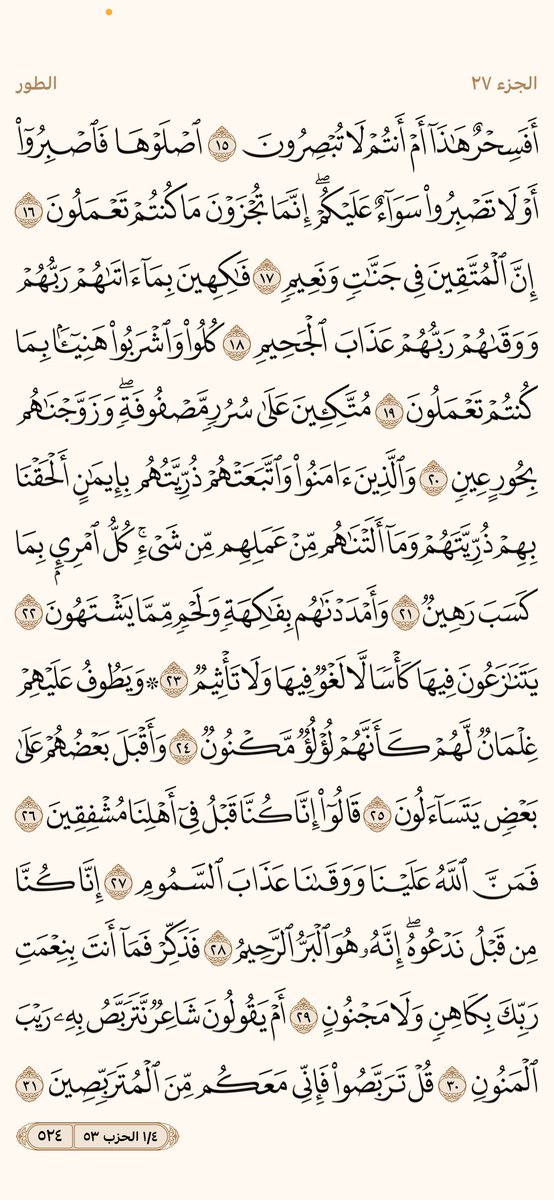 الجزء ٢٧
الطور
أَفَسِحۡرٌ هَٰذَآ أَمۡ أَنتُمۡ لَا تُبۡصِرُونَ ١٥ ٱصۡلَوۡهَا فَٱصۡبِرُوٓاْ
أَوۡ لَا تَصۡبِرُواْ سَوَآءٌ عَلَيۡكُمۡۖ إِنَّمَا تُجۡزَوۡنَ مَا كُنتُمۡ تَعۡمَلُونَ ١٦
إِنَّ ٱلۡمُتَّقِينَ فِي جَنَّٰتٖ وَنَعِيمٖ ١٧ فَٰكِهِينَ بِمَآ ءَاتَىٰهُمۡ رَبُّهُمۡ
وَوَقَىٰهُمۡ رَبُّهُمۡ عَذَابَ ٱلۡجَحِيمِ ١٨ كُلُواْ وَٱشۡرَبُواْ هَنِيٓـَٔۢا بِمَا
كُنتُمۡ تَعۡمَلُونَ ١٩ مُتَّكِـِٔينَ عَلَىٰ سُرُرٖ مَّصۡفُوفَةٖۖ وَزَوَّجۡنَٰهُم
بِحُورٍ عِينٖ ٢٠ وَٱلَّذِينَ ءَامَنُواْ وَٱتَّبَعَتۡهُمۡ ذُرِّيَّتُهُم بِإِيمَٰنٍ أَلۡحَقۡنَا
بِهِمۡ ذُرِّيَّتَهُمۡ وَمَآ أَلَتۡنَٰهُم مِّنۡ عَمَلِهِم مِّن شَيۡءٖۚ كُلُّ ٱمۡرِيِٕۭ بِمَا
كَسَبَ رَهِينٞ ٢١ وَأَمۡدَدۡنَٰهُم بِفَٰكِهَةٖ وَلَحۡمٖ مِّمَّا يَشۡتَهُونَ ٢٢
يَتَنَٰزَعُونَ فِيهَا كَأۡسٗا لَّا لَغۡوٞ فِيهَا وَلَا تَأۡثِيمٞ ٢٣ ۞ وَيَطُوفُ عَلَيۡهِمۡ
غِلۡمَانٞ لَّهُمۡ كَأَنَّهُمۡ لُؤۡلُؤٞ مَّكۡنُونٞ ٢٤ وَأَقۡبَلَ بَعۡضُهُمۡ عَلَىٰ
بَعۡضٖ يَتَسَآءَلُونَ ٢٥ قَالُوٓاْ إِنَّا كُنَّا قَبۡلُ فِيٓ أَهۡلِنَا مُشۡفِقِينَ ٢٦
فَمَنَّ ٱللَّهُ عَلَيۡنَا وَوَقَىٰنَا عَذَابَ ٱلسَّمُومِ ٢٧ إِنَّا كُنَّا
مِن قَبۡلُ نَدۡعُوهُۖ إِنَّهُۥ هُوَ ٱلۡبَرُّ ٱلرَّحِيمُ ٢٨ فَذَكِّرۡ فَمَآ أَنتَ بِنِعۡمَتِ
رَبِّكَ بِكَاهِنٖ وَلَا مَجۡنُونٍ ٢٩ أَمۡ يَقُولُونَ شَاعِرٞ نَّتَرَبَّصُ بِهِۦ رَيۡبَ
ٱلۡمَنُونِ ٣٠ قُلۡ تَرَبَّصُواْ فَإِنِّي مَعَكُم مِّنَ ٱلۡمُتَرَبِّصِينَ ٣١
١/٤ الحزب ٥٣
٥٢٤